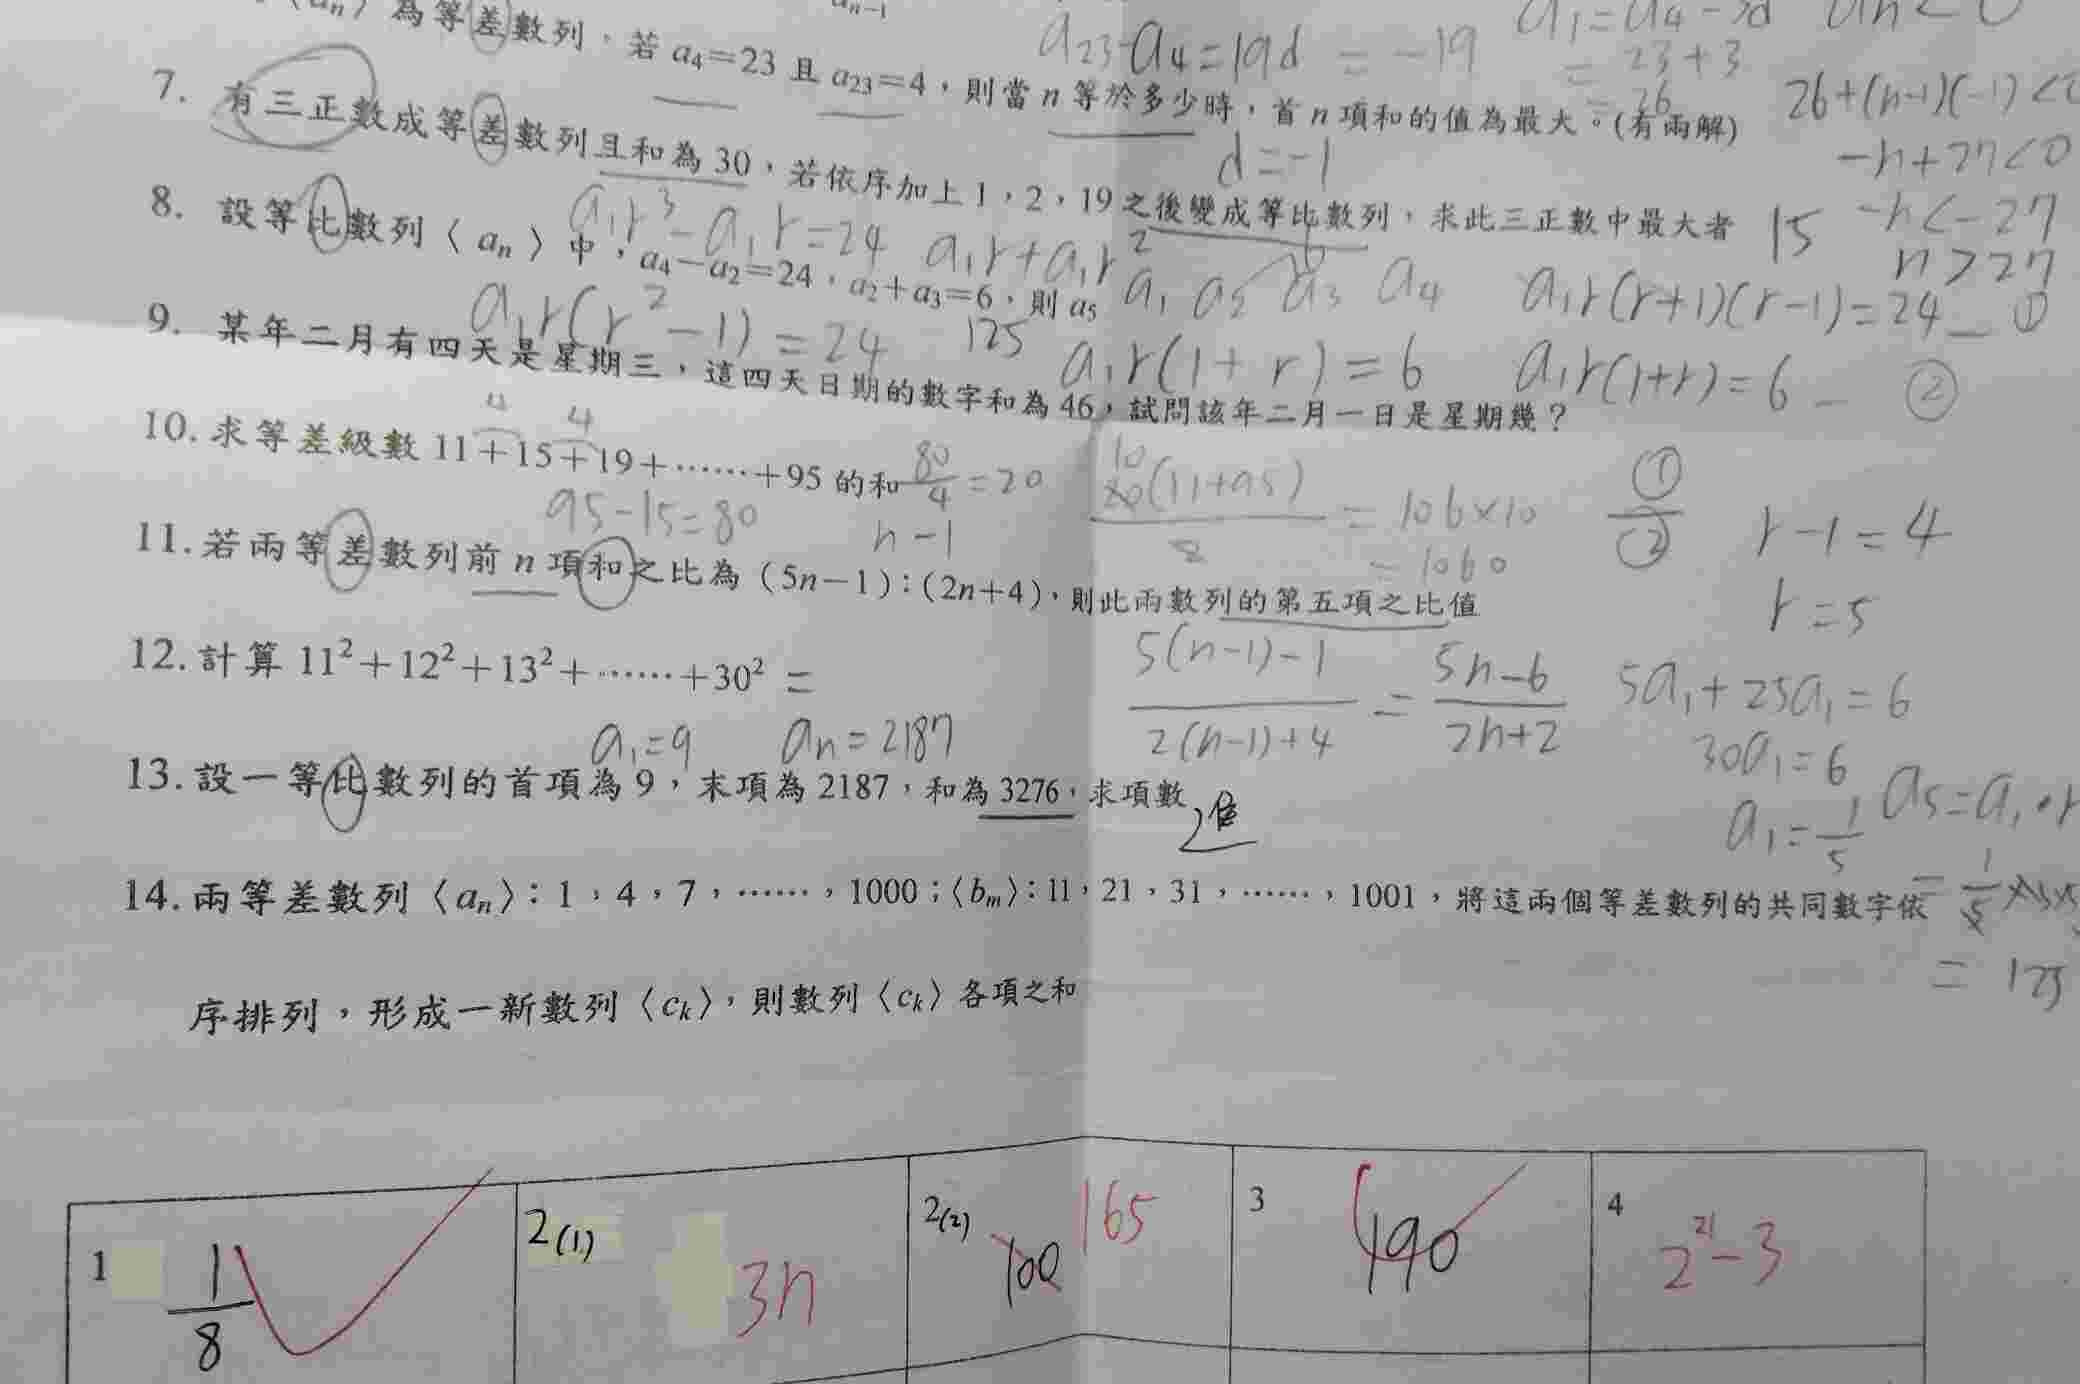 ⟨aₙ⟩ 為等差數列，若 a₄=23 且 a₂₃=4，則當 n 等於多少時，首 n 項和的值為最大。(有兩解)
a₂₃-a₄=19d = -19
= 23+3
= 26
26+(n-1)(-1)<0
d=-1
-n+27<0
-n<-27
n>27
7. 有三正數成等差數列且和為 30，若依序加上 1，2，19 之後變成等比數列，求此三正數中最大者
15
a₁r³-a₁r=24 a₁r+a₁r²
8. 設等比數列〈 aₙ 〉中，a₄-a₂=24，a₂+a₃=6，則 a₅
a₁ a₂ a₃ a₄ a₁r(r+1)(r-1)=24 — ①
a₁r(r²-1)=24 125 a₁r(1+r)=6 a₁r(1+r)=6 — ②
9. 某年二月有四天是星期三，這四天日期的數字和為 46，試問該年二月一日是星期幾？
4 4
10. 求等差級數 11+15+19+……+95 的和
80/4=20
95-15=80
n-1
= 106×10
= 1060
①/②
r-1=4
r=5
11. 若兩等差數列前 n 項和之比為（5n-1）:（2n+4），則此兩數列的第五項之比值
(5(n-1)-1)/(2(n-1)+4) = (5n-6)/(2n+2)
5a₁+25a₁=6
30a₁=6
a₁=1/5
12. 計算 11²+12²+13²+……+30² =
a₁=9 aₙ=2187
13. 設一等比數列的首項為 9，末項為 2187，和為 3276，求項數
14. 兩等差數列〈aₙ〉：1，4，7，……，1000；〈bₘ〉：11，21，31，……，1001，將這兩個等差數列的共同數字依
序排列，形成一新數列〈cₖ〉，則數列〈cₖ〉各項之和
= 125
1 1/8
2(1) 3n
2(2) 100 165
3 490
4 2²¹-3